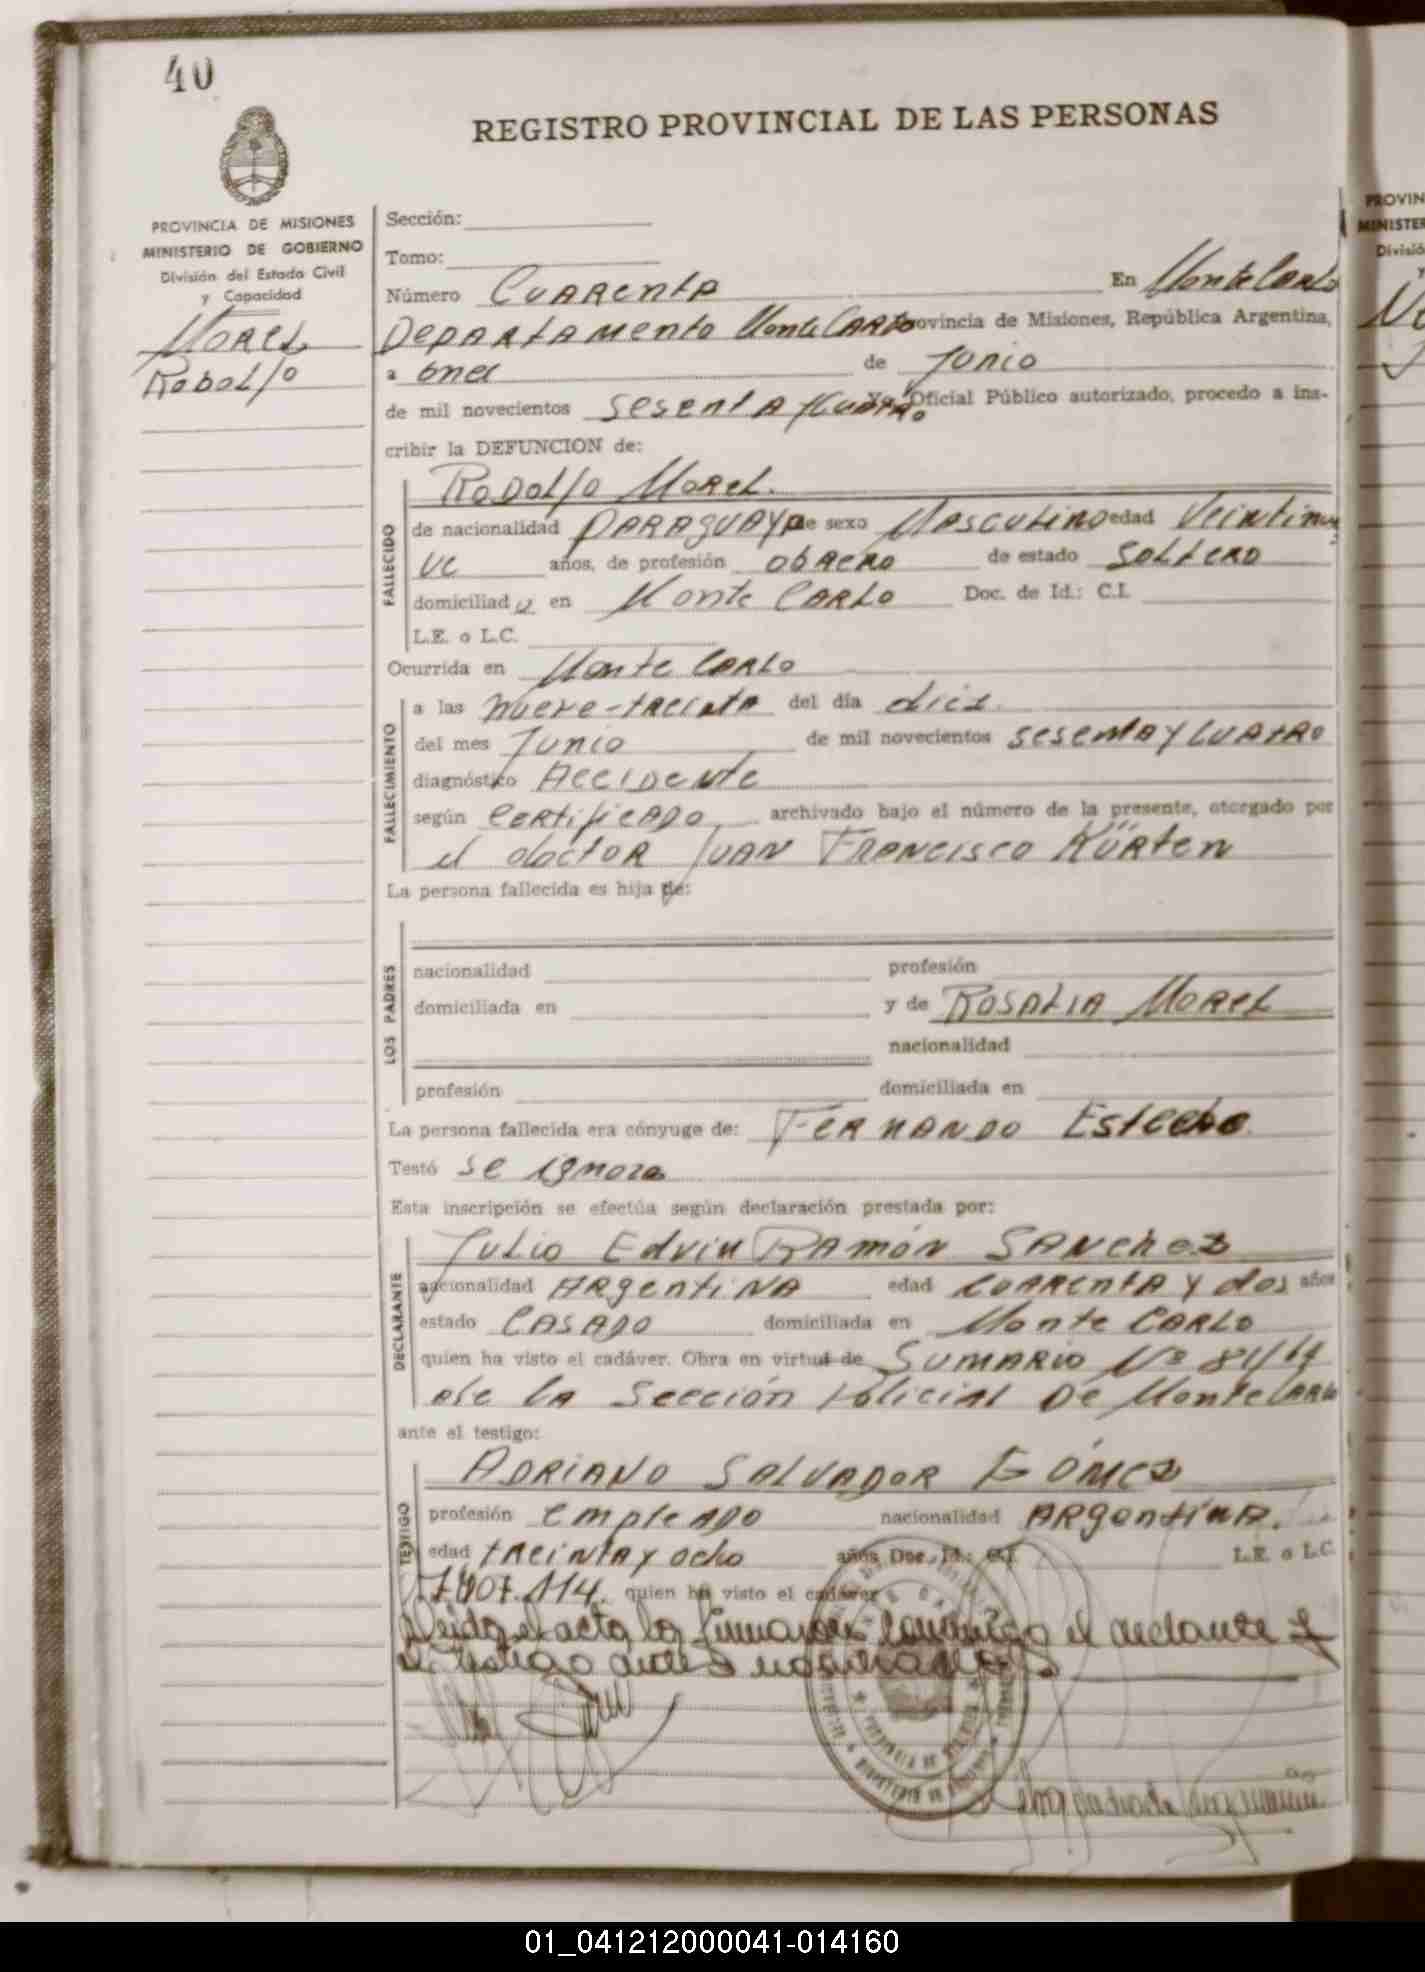 40
REGISTRO PROVINCIAL DE LAS PERSONAS
PROVINCIA DE MISIONES
MINISTERIO DE GOBIERNO
División del Estado Civil
y Capacidad
Morel
Rodolfo
Sección:
Tomo:
Número Cuarenta En Monte Carlo
Departamento Monte Carlo Provincia de Misiones, República Argentina,
a once de Junio
de mil novecientos sesenta y cuatro Yo, Oficial Público autorizado, procedo a ins-
cribir la DEFUNCION de:
FALLECIDO
Rodolfo Morel.
de nacionalidad PARAGUAYA de sexo Masculino edad Veintinue
ve años, de profesión obrero de estado soltero
domiciliado en Monte Carlo Doc. de Id.: C.I.
L.E. o L.C.
Ocurrida en Monte Carlo
FALLECIMIENTO
a las nueve-treinta del día diez
del mes Junio de mil novecientos sesenta y cuatro
diagnóstico Accidente
según certificado archivado bajo el número de la presente, otorgado por
el doctor Juan Francisco Kürten
La persona fallecida es hija de:
LOS PADRES
nacionalidad profesión
domiciliada en y de Rosalia Morel
nacionalidad
profesión domiciliada en
La persona fallecida era cónyuge de: Fernando
Testó se ignora
Esta inscripción se efectúa según declaración prestada por:
DECLARANTE
Julio Edvin Ramón Sanchez
nacionalidad Argentina edad cuarenta y dos años
estado Casado domiciliada en Monte Carlo
quien ha visto el cadáver. Obra en virtud de Sumario Nº 81/64
de la Sección Policial De Monte Carlo
ante el testigo:
TESTIGO
Adriano Salvador Gómez
profesión empleado nacionalidad Argentina.
edad treinta y ocho años Doc. Id.: C.I. L.E. o L.C.
7.407.114. quien ha visto el cadáver
Leida el acta la firman conmigo el declarante y
el testigo antes nombrado
01_041212000041-014160
PROVIN
MINISTER
Divisió